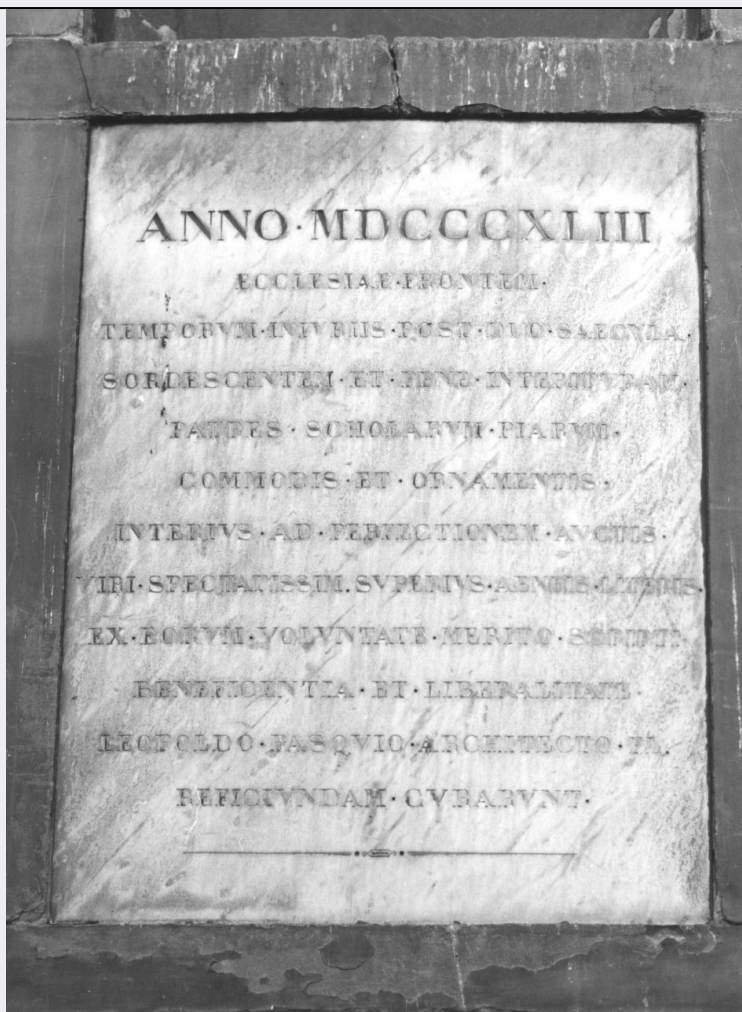 ANNO·MDCCCXLIII
ECCLESIAE·FRONTEM·
TEMPORVM·INIVRIIS·POST·DUO·SAECVLA·
SORDESCENTEM·ET·PENE·INTERITVRAM·
PATRES·SCHOLARVM·PIARVM·
COMMODIS·ET·ORNAMENTIS·
INTERIVS·AD·PERFECTIONEM·AVCTIS·
VIRI·SPECTATISSIM.SVPERIVS·AENEIS·LITERIS·
EX·EORVM·VOLVNTATE·MERITO·SCRIPTI·
BENEFICENTIA·ET·LIBERALITATE·
LEOPOLDO·PASQVIO·ARCHITECTO·FL.
REFICIVNDAM·CVRARVNT·